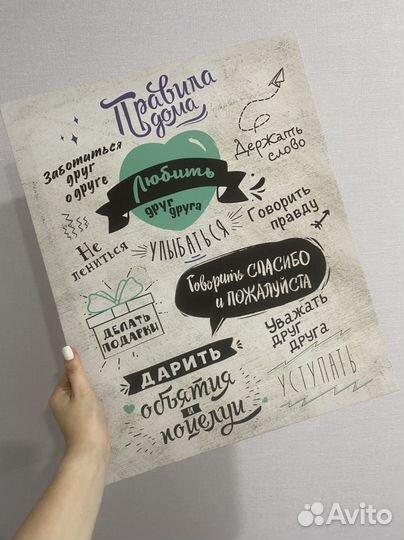 Правила
дома
Заботиться
друг
о друге
Держать
слово
Любить
друг друга
Говорить
правду
Не
лениться
УЛЫБАТЬСЯ
Говорить СПАСИБО
и ПОЖАЛУЙСТА
ДЕЛАТЬ
ПОДАРКИ
Уважать
друг
друга
ДАРИТЬ
объятия
и
поцелуи
УСТУПАТЬ
Avito